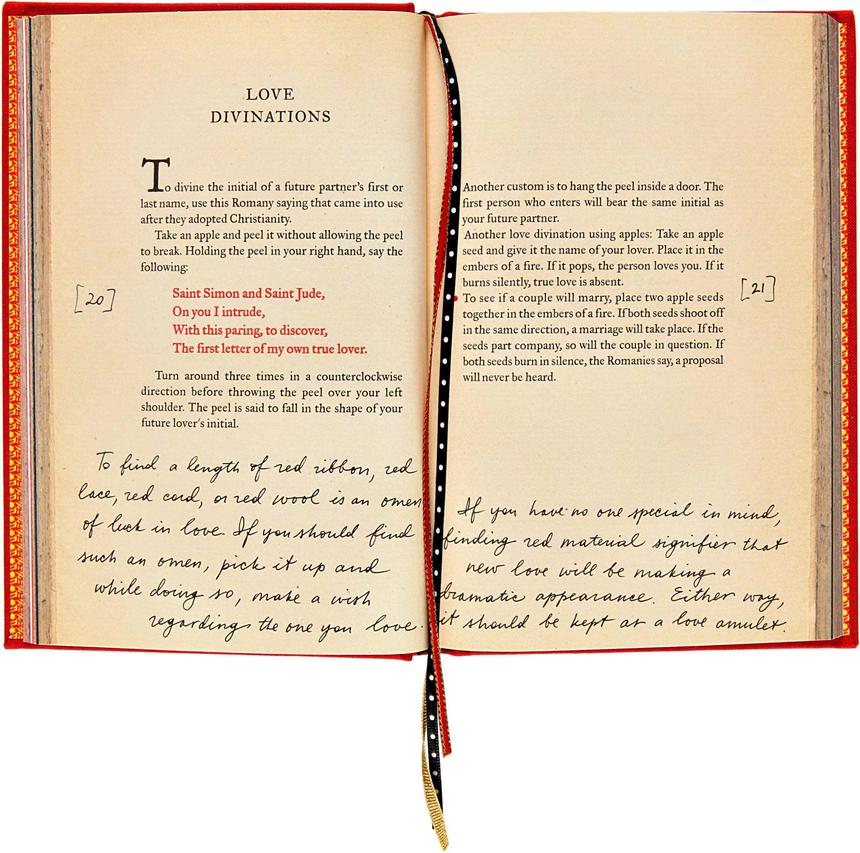 LOVE
DIVINATIONS
To divine the initial of a future partner's first or
last name, use this Romany saying that came into use
after they adopted Christianity.
Take an apple and peel it without allowing the peel
to break. Holding the peel in your right hand, say the
following:
[20]
Saint Simon and Saint Jude,
On you I intrude,
With this paring, to discover,
The first letter of my own true lover.
Turn around three times in a counterclockwise
direction before throwing the peel over your left
shoulder. The peel is said to fall in the shape of your
future lover's initial.
To find a length of red ribbon, red
lace, red cord, or red wool is an omen
of luck in love. If you should find
such an omen, pick it up and
while doing so, make a wish
regarding the one you love.
Another custom is to hang the peel inside a door. The
first person who enters will bear the same initial as
your future partner.
Another love divination using apples: Take an apple
seed and give it the name of your lover. Place it in the
embers of a fire. If it pops, the person loves you. If it
burns silently, true love is absent.
[21]
To see if a couple will marry, place two apple seeds
together in the embers of a fire. If both seeds shoot off
in the same direction, a marriage will take place. If the
seeds part company, so will the couple in question. If
both seeds burn in silence, the Romanies say, a proposal
will never be heard.
If you have no one special in mind,
finding red material signifier that
new love will be making a
dramatic appearance. Either way,
it should be kept as a love amulet.